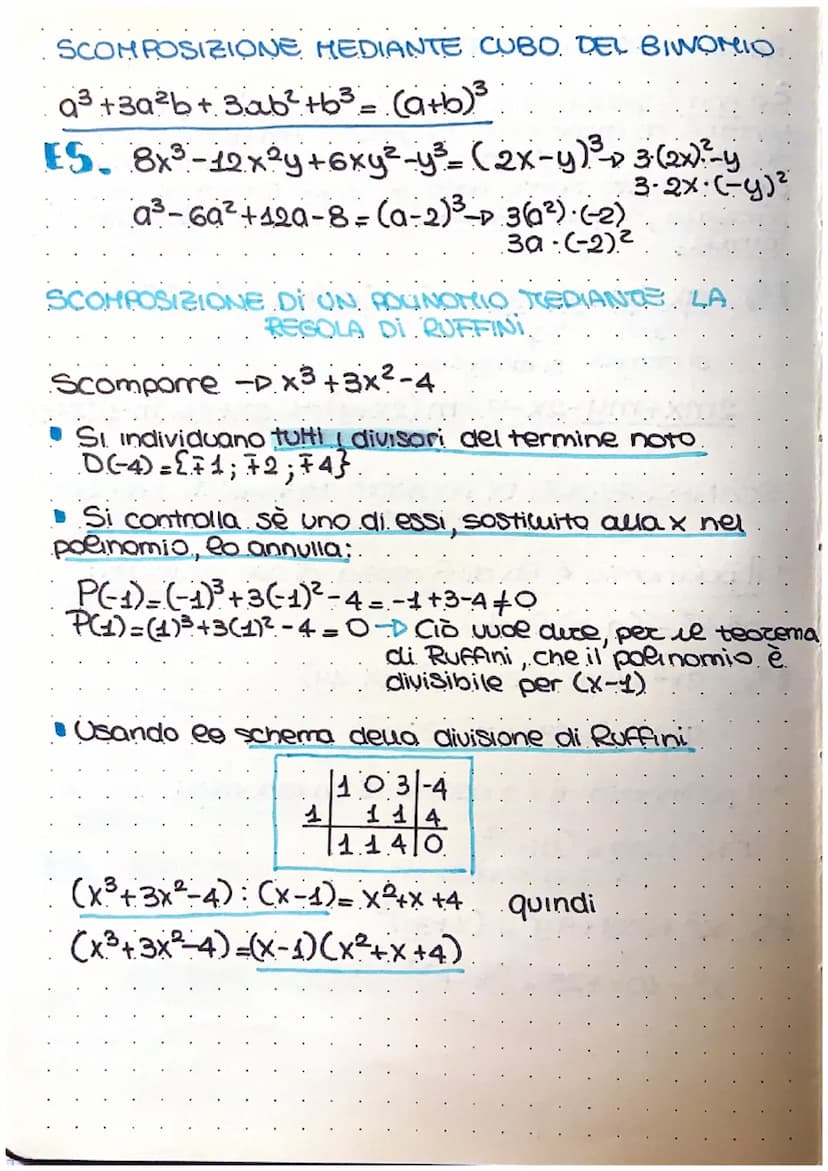 SCOMPOSIZIONE MEDIANTE CUBO DEL BINOMIO
a³+3a²b+3ab²+b³=(a+b)³
ES. 8x³-12x²y+6xy²-y³=(2x-y)³→3·(2x)²·-y
3·2x·(-y)²
a³-6a²+12a-8=(a-2)³→3(a²)·(-2)
3a·(-2)²
SCOMPOSIZIONE Di UN POLINOMIO MEDIANTE LA
REGOLA Di RUFFiNi
Scomporre →x³+3x²-4
▪ Si individuano tutti i divisori del termine noto
D(-4)={∓1;∓2;∓4}
▪ Si controlla sè uno di essi, sostituito alla x nel
polinomio, lo annulla:
P(-1)=(-1)³+3(-1)²-4=-1+3-4≠0
P(1)=(1)³+3(1)²-4=0→Ciò vuol dire, per il teorema
di Ruffini, che il polinomio è
divisibile per (x-1)
▪ Usando lo schema della divisione di Ruffini
|1 0 3|-4
1| 1 1|4
|1 1 4|0
(x³+3x²-4):(x-1)=x²+x+4 quindi
(x³+3x²-4)=(x-1)(x²+x+4)